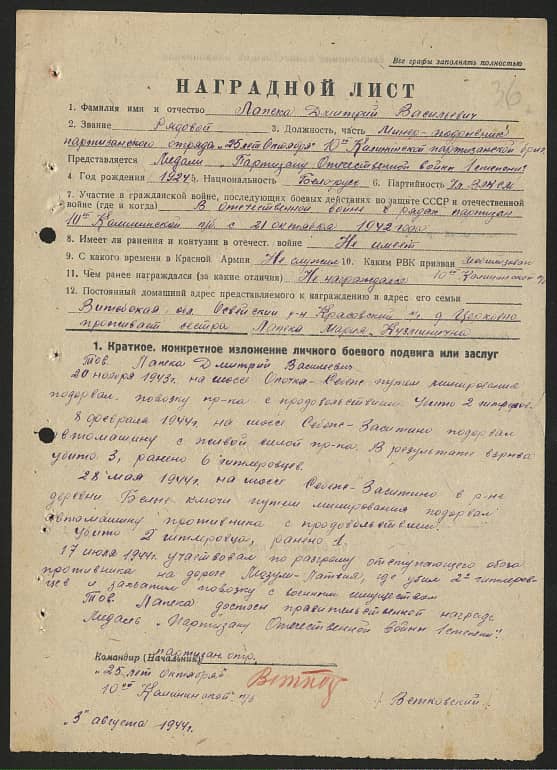 Все графы заполнять полностью
36
НАГРАДНОЙ ЛИСТ
1. Фамилия имя и отчество Лапека Дмитрий Васильевич
2. Звание Рядовой 3. Должность, часть Минер-подрывник
партизанского отряда "25 лет Октября" 10ой Калининской партизанской бриг.
Представляется Медали "Партизану Отечественной войны 1 степени"
4. Год рождения 1924 5. Национальность Белорус 6. Партийность Чл. ВЛКСМ
7. Участие в гражданской войне, последующих боевых действиях по защите СССР и отечественной
войне (где и когда) В отечественной войне в рядах партизан
10ой Калининской п/б с 21 октября 1942 года
8. Имеет ли ранения и контузии в отечеств. войне Не имеет
9. С какого времени в Красной Армии Не служил 10. Каким РВК призван мобилизован
11. Чем ранее награждался (за какие отличия) Не награждался 10ой Калининской п/б
12. Постоянный домашний адрес представляемого к награждению и адрес его семьи
Витебская обл. Освейский р-н Красовский с/с д. Церковно
проживает сестра Лапека Мария Кузьминична
1. Краткое, конкретное изложение личного боевого подвига или заслуг
Тов. Лапека Дмитрий Васильевич
20 ноября 1943г. на шоссе Опочка-Себеж путем минирования
подорвал повозку пр-ка с продовольствием. Убито 2 гитлеровца.
8 февраля 1944г. на шоссе Себеж-Заситино подорвал
автомашину с живой силой пр-ка. В результате взрыва
убито 3, ранено 6 гитлеровцев.
28 мая 1944г. на шоссе Себеж-Заситино в р-не
деревни Белые ключи путем минирования подорвал
автомашину противника с продовольствием.
Убито 2 гитлеровца, ранено 1.
17 июля 1944г. участвовал по разгрому отступающего обоза
противника на дороге Мозули-Латвия, где убил 2х гитлеров-
цев и захватил повозку с военным имуществом
Тов. Лапека достоин правительственной награды
Медаль "Партизану Отечественной войны 1 степени".
Командир (Начальник) партизан. отр.
"25 лет Октября"
10ой Калининской п/б
/Ветковский/
"3" августа 1944г.